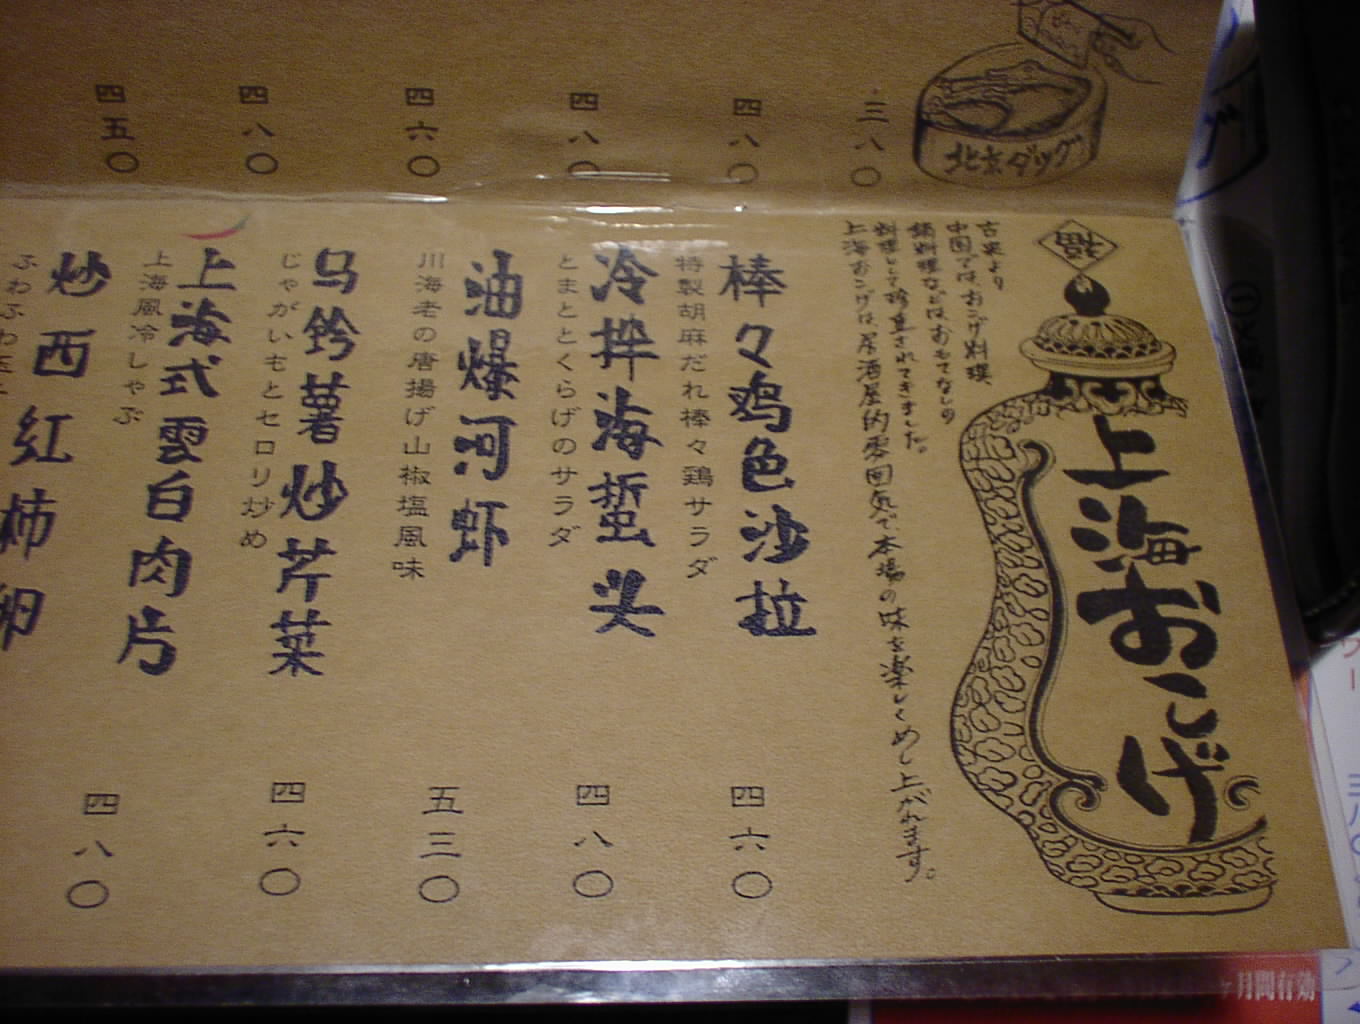 北京ダック
三八〇
四八〇
四八〇
四六〇
四八〇
四五〇
福
上海おこげ
古来より
中国では、おこげ料理
鍋料理などはおもてなしの
料理として珍重されてきました。
上海おこげは、居酒屋的雰囲気で、本場の味を楽しくめし上がれます。
棒々鸡色沙拉
特製胡麻だれ棒々鶏サラダ
四六〇
冷拌海蜇头
とまととくらげのサラダ
四八〇
油爆河虾
川海老の唐揚げ山椒塩風味
五三〇
马鈴薯炒芹菜
じゃがいもとセロリ炒め
四六〇
上海式雲白肉片
上海風冷しゃぶ
四八〇
炒西红柿卵
ふわふわ玉子
ヶ月間有効